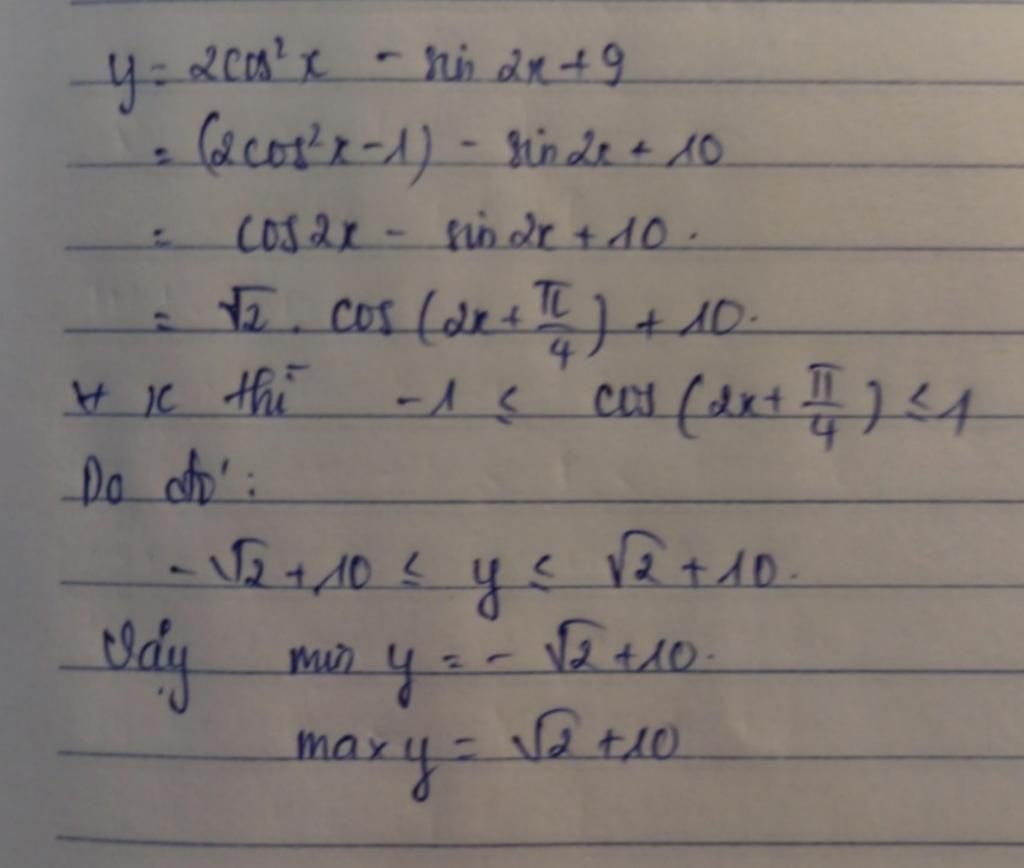 y = 2cos²x - sin 2x + 9
= (2cos²x - 1) - sin 2x + 10
= cos 2x - sin 2x + 10.
= √2 . cos (2x + π/4) + 10.
∀ x thì -1 ≤ cos (2x + π/4) ≤ 1
Do đó :
-√2 + 10 ≤ y ≤ √2 + 10.
Vậy min y = - √2 + 10.
max y = √2 + 10